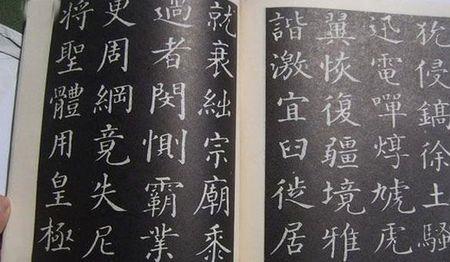 狁侵鎬徐土騷
迅電嘽焞虓虎
翼恢復疆境雅
諧激宜臼徙居
就衰絀宗廟黍
過者閔惻霸業
更周綱竟失尼
將聖體用皇極